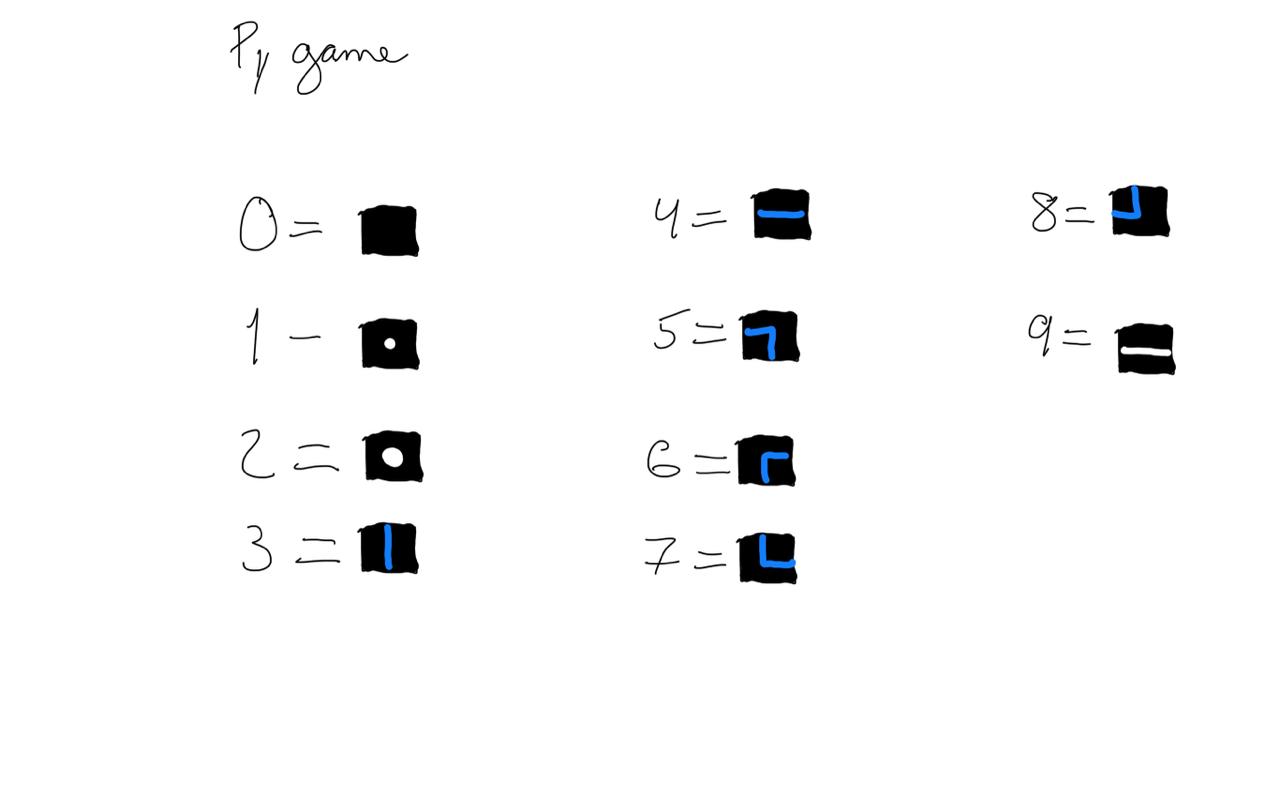 Py game
0 =
1 -
2 =
3 =
4 =
5 =
6 =
7 =
8 =
9 =